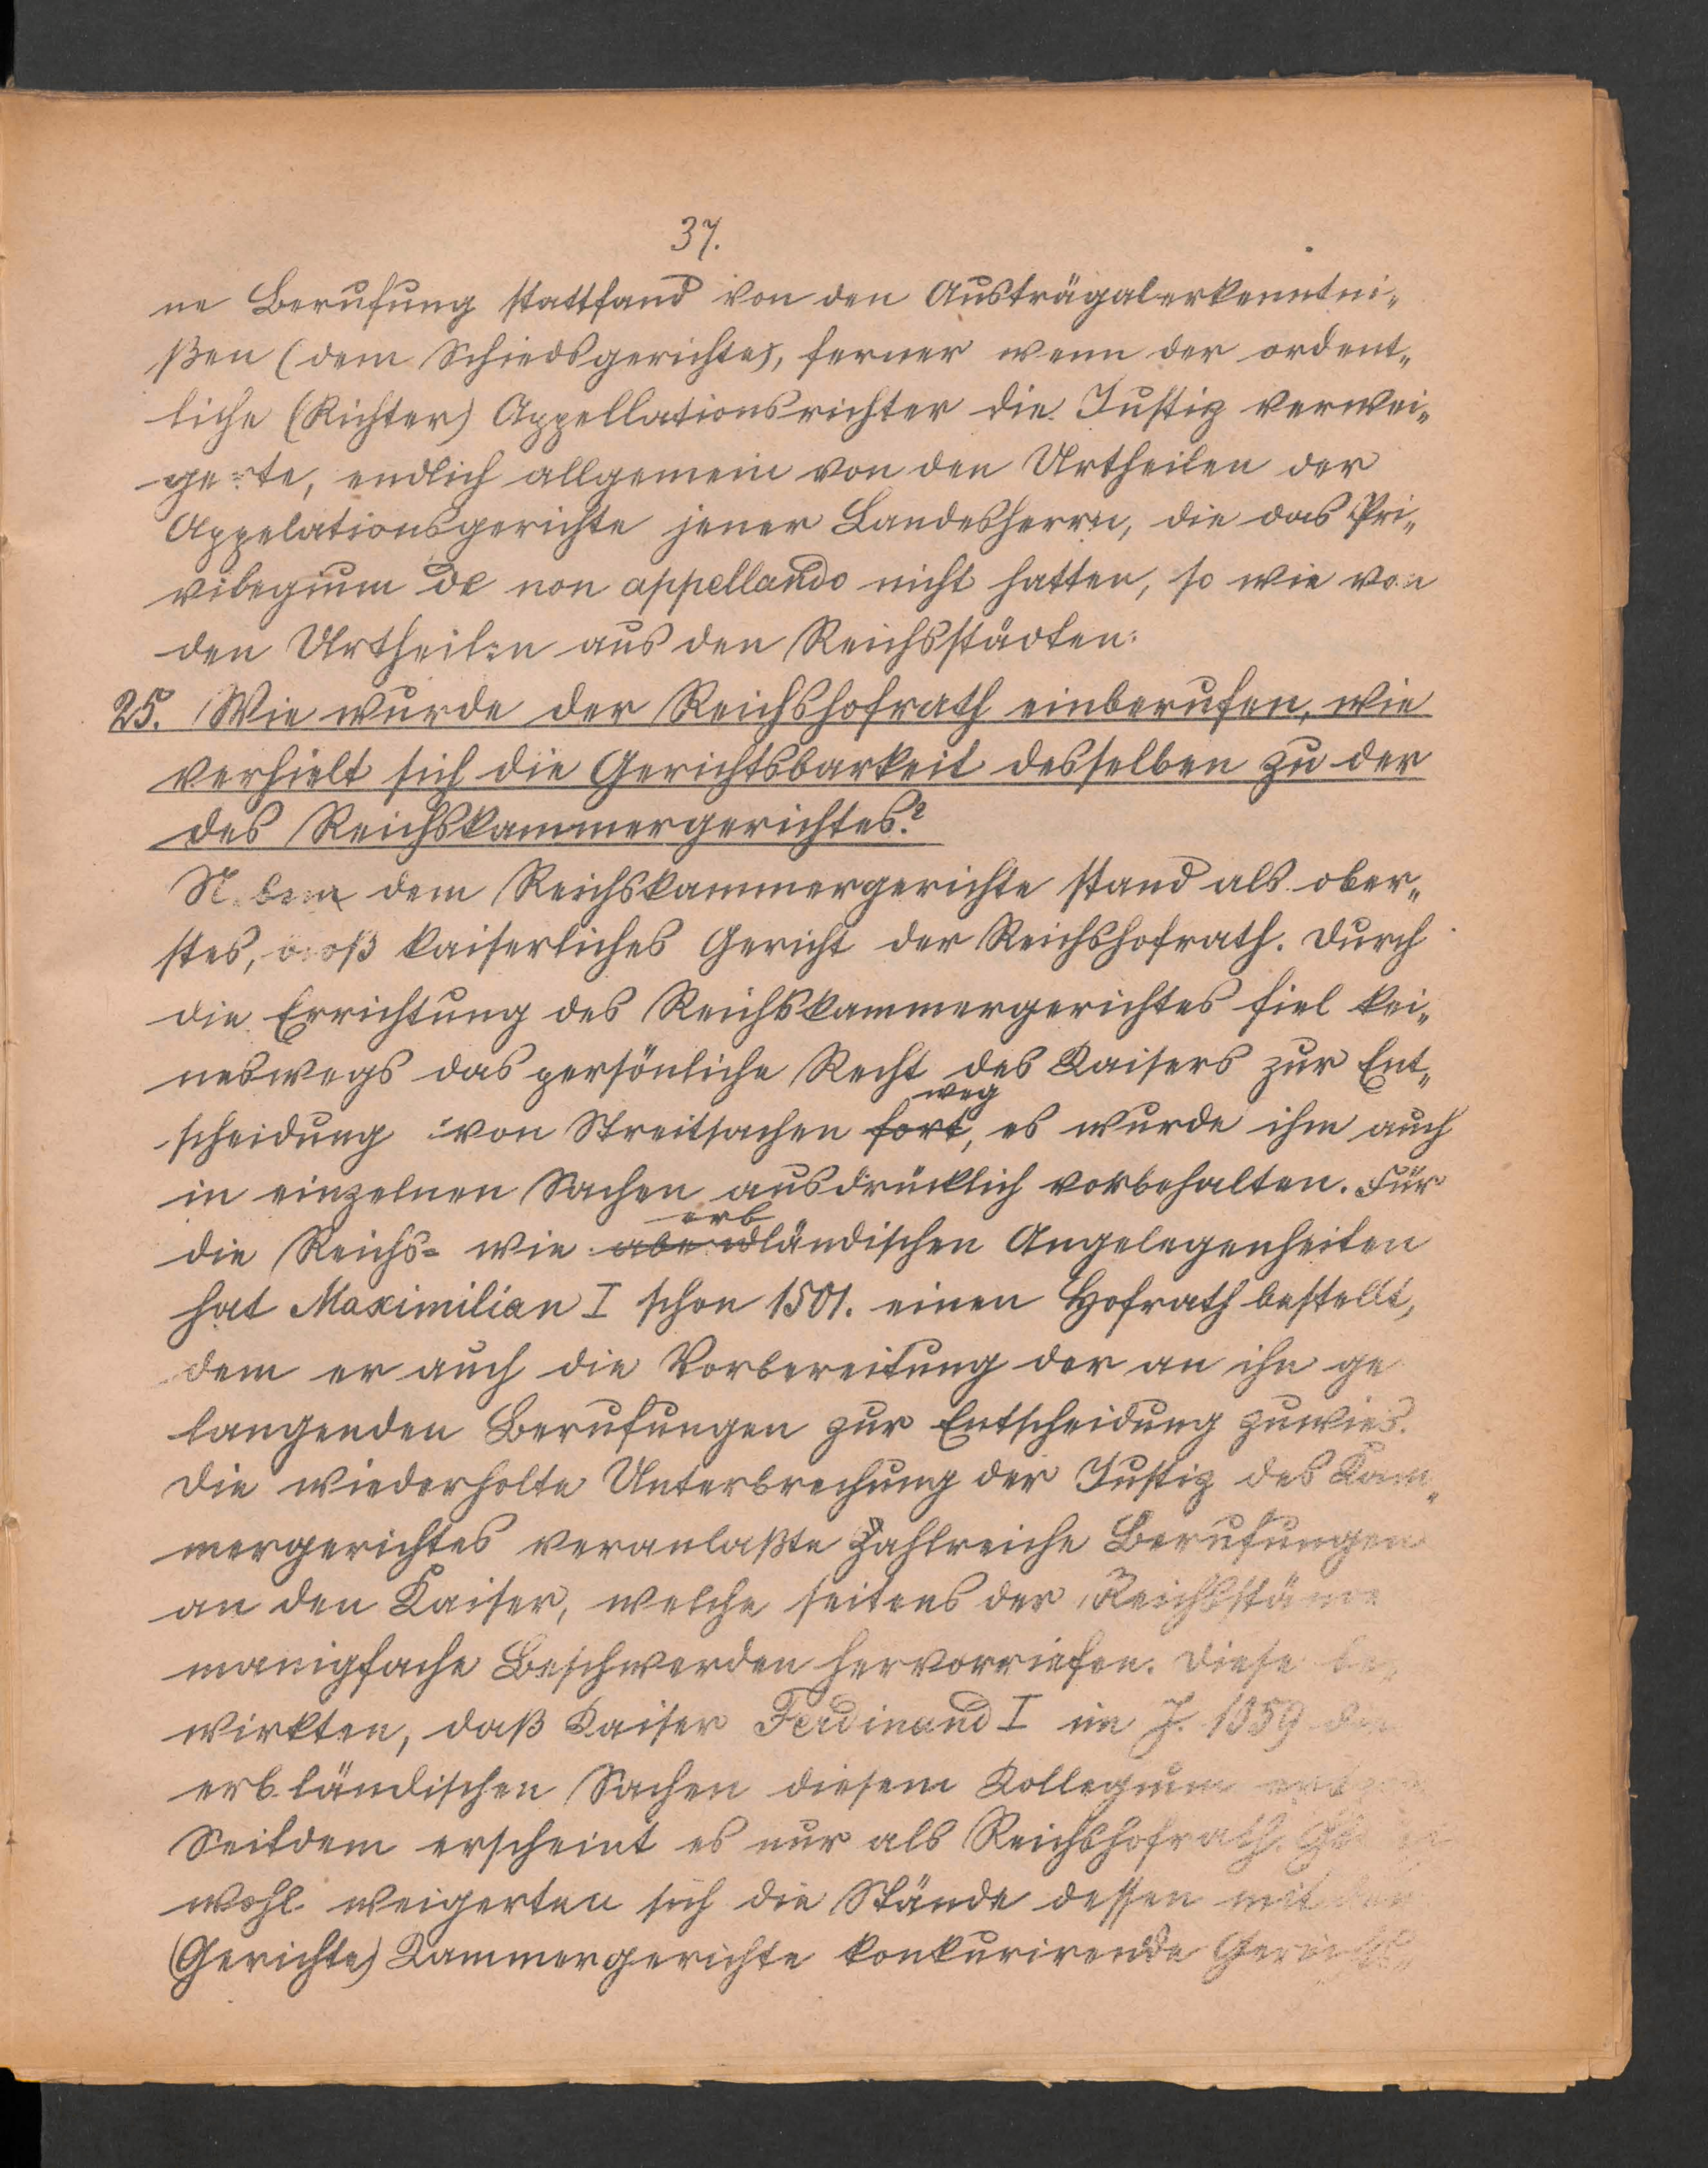 37.
ne Berufung stattfand von den Austrägalerkenntni„
ßen (dem Schiedsgerichte), ferner wenn der ordent„
liche (Richter) Appellationsrichter die Justiz verwei„
gerte, endlich allgemein von den Urtheilen der
Appelationsgerichte jener Landesherrn, die das Pri„
vilegium de non appellando nicht hatten, so wie von
den Urtheilen aus den Reichsstädten.
25. Wie wurde der Reichshofrath einberufen, wie
verhielt sich die Gerichtsbarkeit desselben zu der
des Reichskammergerichtes?
Neben dem Reichskammergerichte stand als ober„
stes, kaiserliches Gericht der Reichshofrath. Durch
die Errichtung des Reichskammergerichtes fiel kei„
neswegs das persönliche Recht des Kaisers zur Ent„
weg
scheidung von Streitsachen fort, es wurde ihm auch
in einzelnen Sachen ausdrücklich vorbehalten. Für
erb
die Reichs= wie abendländischen Angelegenheiten
hat Maximilian I schon 1501. einen Hofrath bestellt,
dem er auch die Vorbereitung der an ihn ge
langenden Berufungen zur Entscheidung zuwies.
Die wiederholte Unterbrechung der Justiz des Kam„
mergerichtes veranlaßte Zahlreiche Berufungen
an den Kaiser, welche seitens der Reichsstände
manigfache Beschwerden hervorriefen. Diese be„
wirkten, daß Kaiser Ferdinand I im J. 1559 die
erbländischen Sachen diesem Kollegium
Seitdem erscheint es nur als Reichshofrath.
wohl weigerten sich die Stände dessen mit dem
(Gerichte) Kammergerichte konkurirende Gerichts„